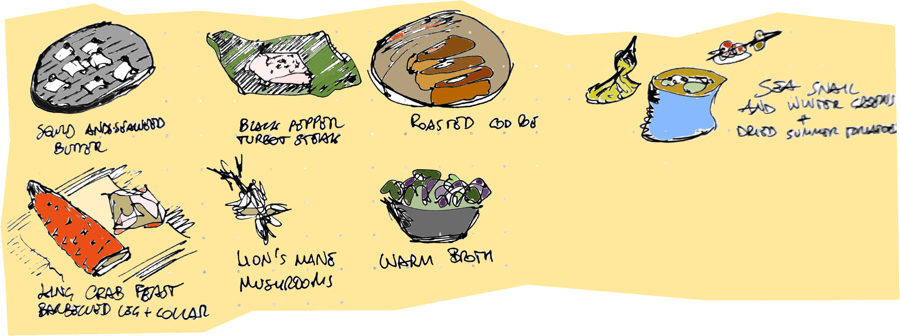 SQUID AND SEAWEED
BUTTER
BLACK PEPPER
TURBOT STEAK
ROASTED COD ROE
SEA SNAIL
AND WINTER GREENS
+
DRIED SUMMER TOMATOES
KING CRAB FEAST
BARBECUED LEG + COLLAR
LION'S MANE
MUSHROOMS
WARM BROTH